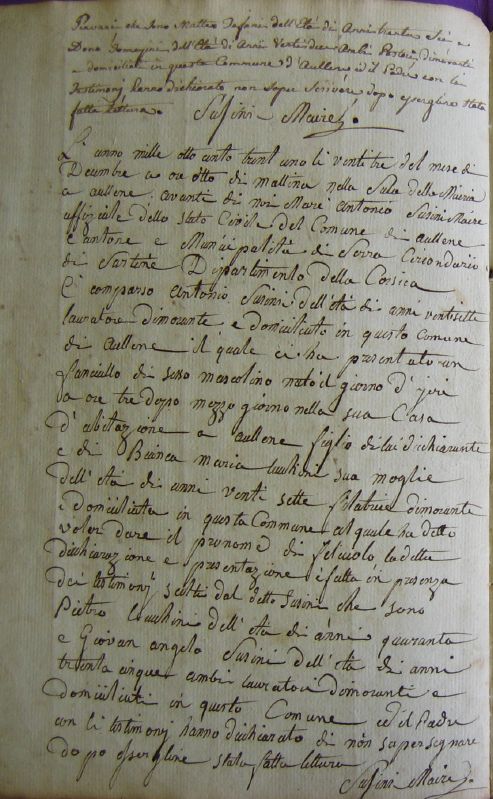 che sono Matteo dell'Età di Anni trenta
Dono dell'Età di Anni
e domiciliati in questa Commune d'Aullene ed il Padre con li
testimonj hanno dichiarato non saper scrivere dopo essergline stata
fatta lettura.
Susini Maire
L'anno mille otto cento trent'uno li venti tre del mese di
Decembre a ore otto di mattina nella Sala della Mairia
a aullene, avanti di noi Marc' Antonio Susini Maire
uffiziale dello stato Civile del Comune di aullene
Cantone e Municipalità di Serra Circondario
di Sartène Dipartimento della Corsica
È comparso Antonio Susini dell'età di anni ventisette
lauratore dimorante e domiciliato in questo Comune
di Aullene il quale ci ha presentato un
fanciullo di sesso mascolino nato il giorno d'jeri
a ore tre dopo mezzo giorno nella sua Casa
d'abitazione a aullene figlio di lui dichiarante
e di Bianca maria Lucchini sua moglie
dell'età di anni venti sette filatrice dimorante
e domiciliata in questa Commune al quale ha detto
voler dare il pronome di feliciolo, la detta
dichiarazione e presentazione è fatta in presenza
dei testimonj scelti dal detto Susini che sono
Pietro Lucchini dell'età di anni quaranta
e Giovan angelo Susini dell'età di anni
trenta cinque ambi lauratori dimoranti e
domiciliati in questo Comune ed il Padre
con li testimonj hanno dichiarato di non saper segnare
dopo essergline stata fatta lettura
Susini Maire